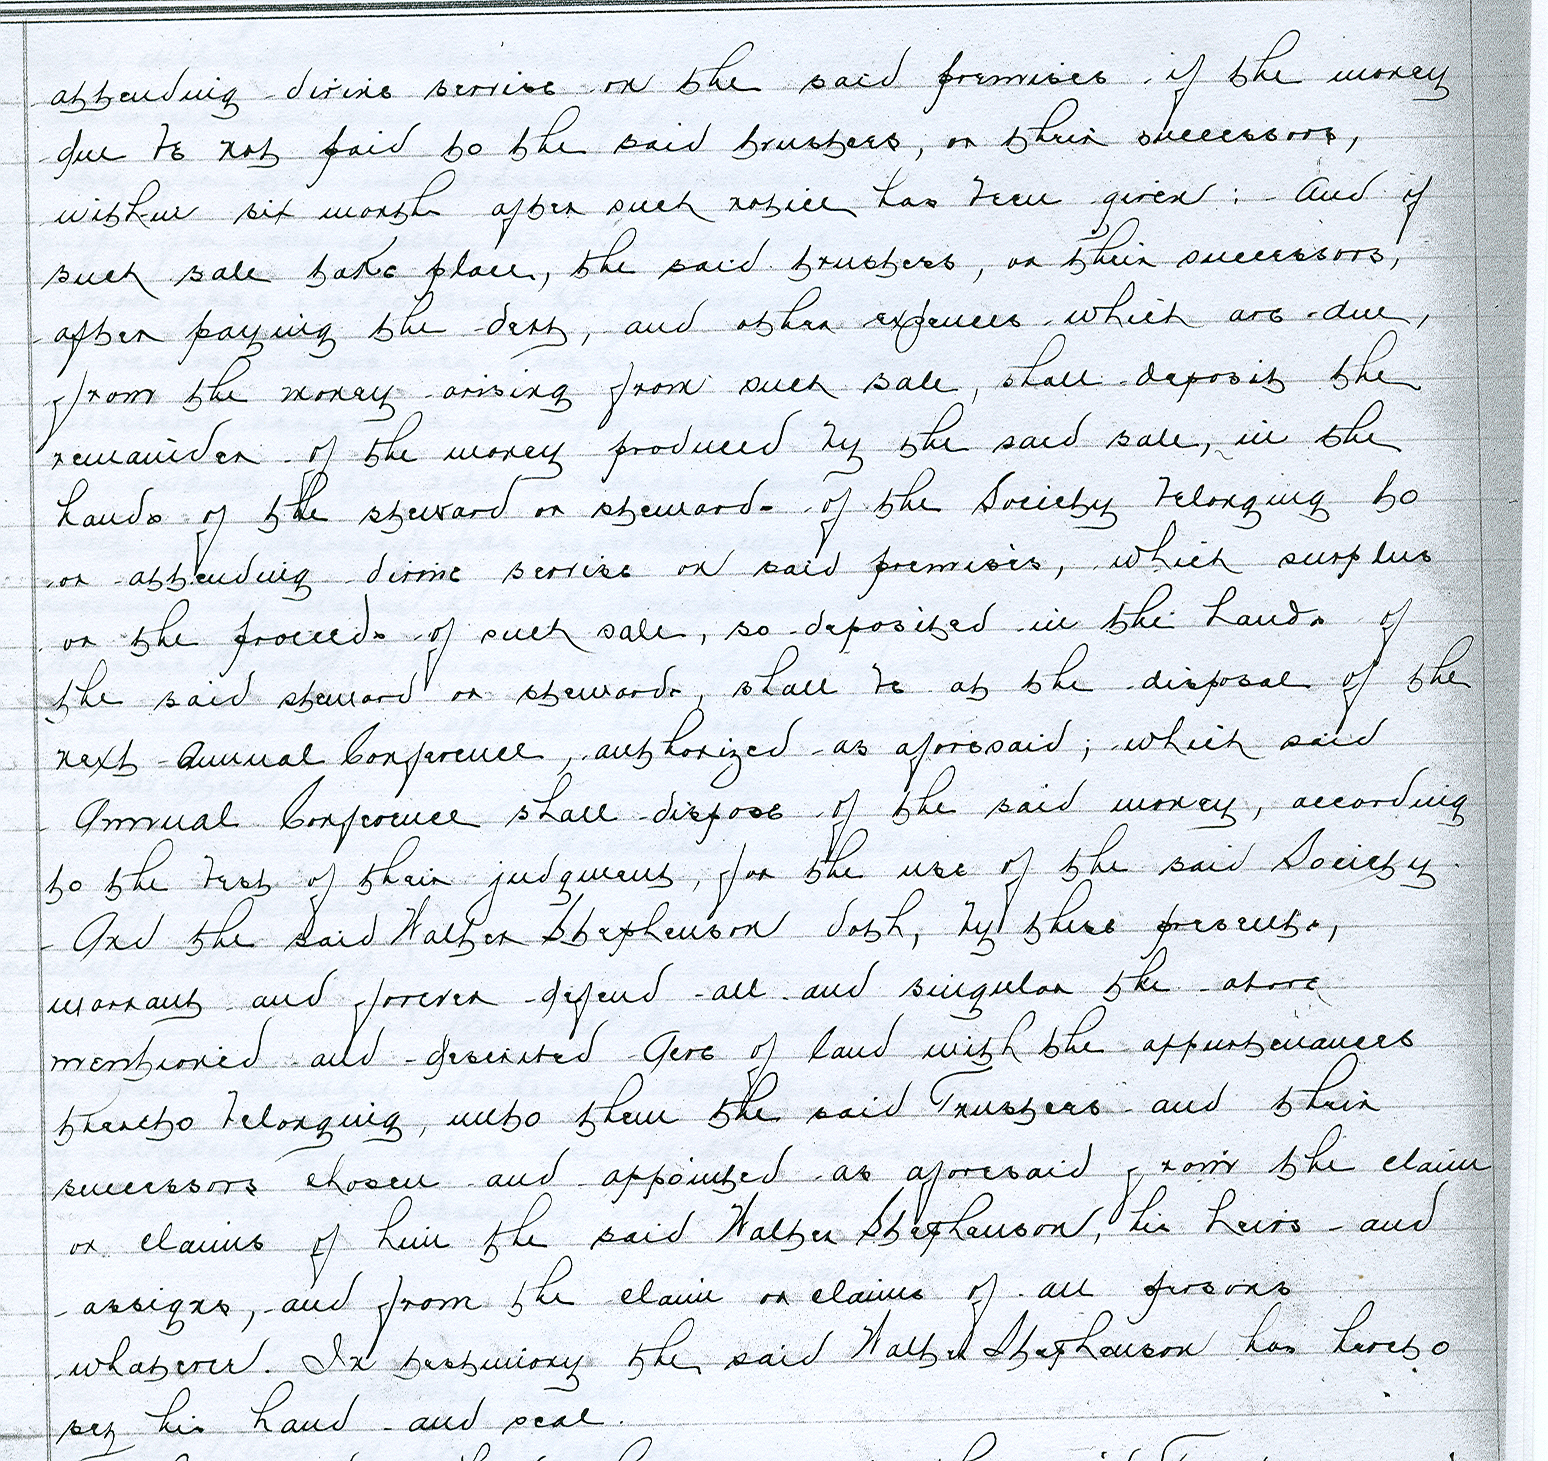 attending divine service on the said premises if the money
due be not paid to the said trustees, or their successors,
within six month after such notice has been given: And if
such sale take place, the said trustees, or their successors,
after paying the debt, and other expences which are due,
from the money arising from such sale, shall deposit the
remainder of the money produced by the said sale, in the
hands of the steward or stewards of the Society belonging to
or attending divine service on said premises, which surplus
or the proceeds of such sale, so deposited in the hands of
the said steward or stewards, shall be at the disposal of the
next Annual Conference, authorized as aforesaid; which said
Annual Conference shall dispose of the said money, according
to the best of their judgment, for the use of the said Society.
And the said Walter Stephenson doth, by these presents,
warrant and forever defend all and singular the above
mentioned and described Acre of land with the appurtenances
thereto belonging, unto them the said Trustees and their
successors chosen and appointed as aforesaid from the claim
or claims of him the said Walter Stephenson, his heirs and
assigns, and from the claim or claims of all persons
whatever. In testimony the said Walter Stephenson has hereto
set his hand and seal.